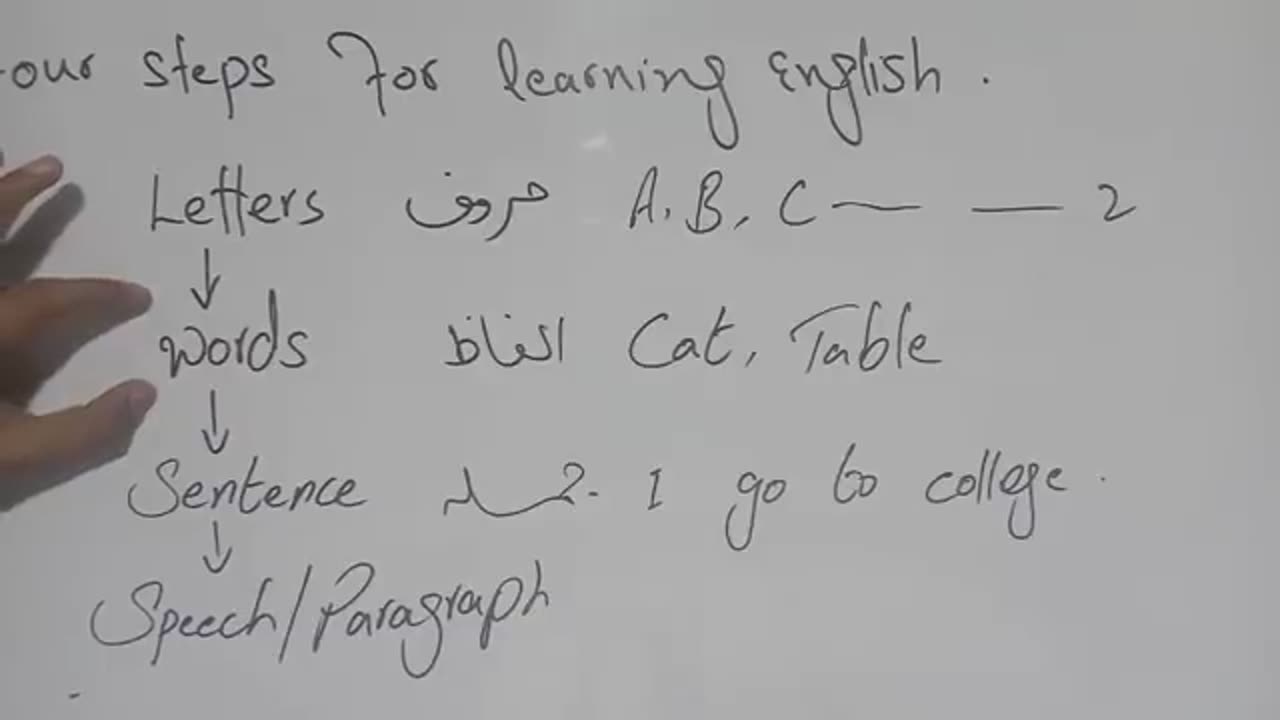 our steps for learning English.
Letters حروف A, B, C — — Z
↓
Words الفاظ Cat, Table
↓
Sentence جملہ I go to college.
↓
Speech/Paragraph